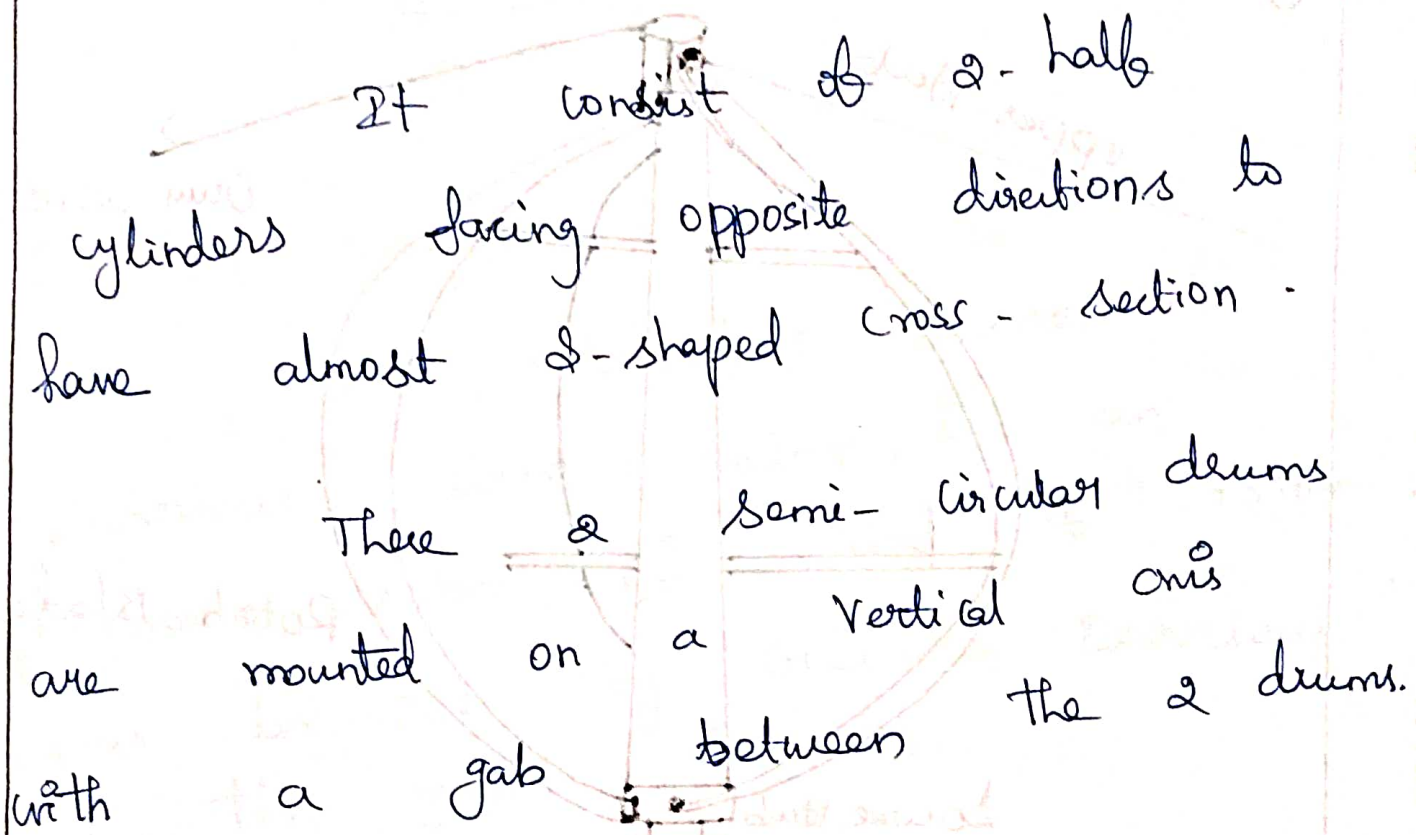 It consist of 2- half
cylinders facing opposite directions to
have almost S-shaped cross - section.
These 2 semi- circular drums
are mounted on a vertical axis
with a gab between the 2 drums.